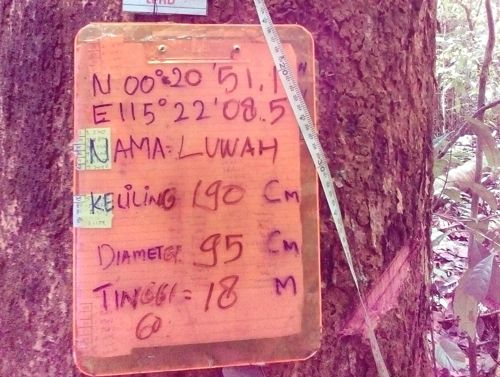 N 00°20'51.1"
E 115°22'08.5
NAMA: LUWAH
KELILING 190 Cm
DIAMETER 95 Cm
TINGGI = 18 M
60